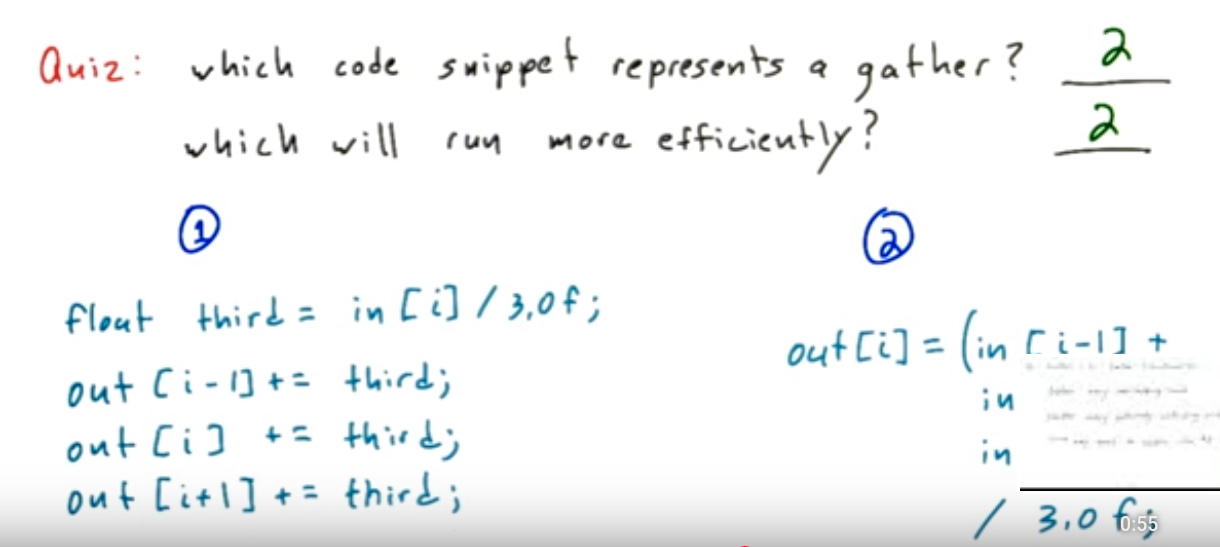 Quiz: which code snippet represents a gather? 2
which will run more efficiently? 2
1
2
float third = in [i] / 3.0f;
out [i-1] += third;
out [i] += third;
out [i+1] += third;
out [i] = (in [i-1] +
in
in
/ 3.0 f;
0:55